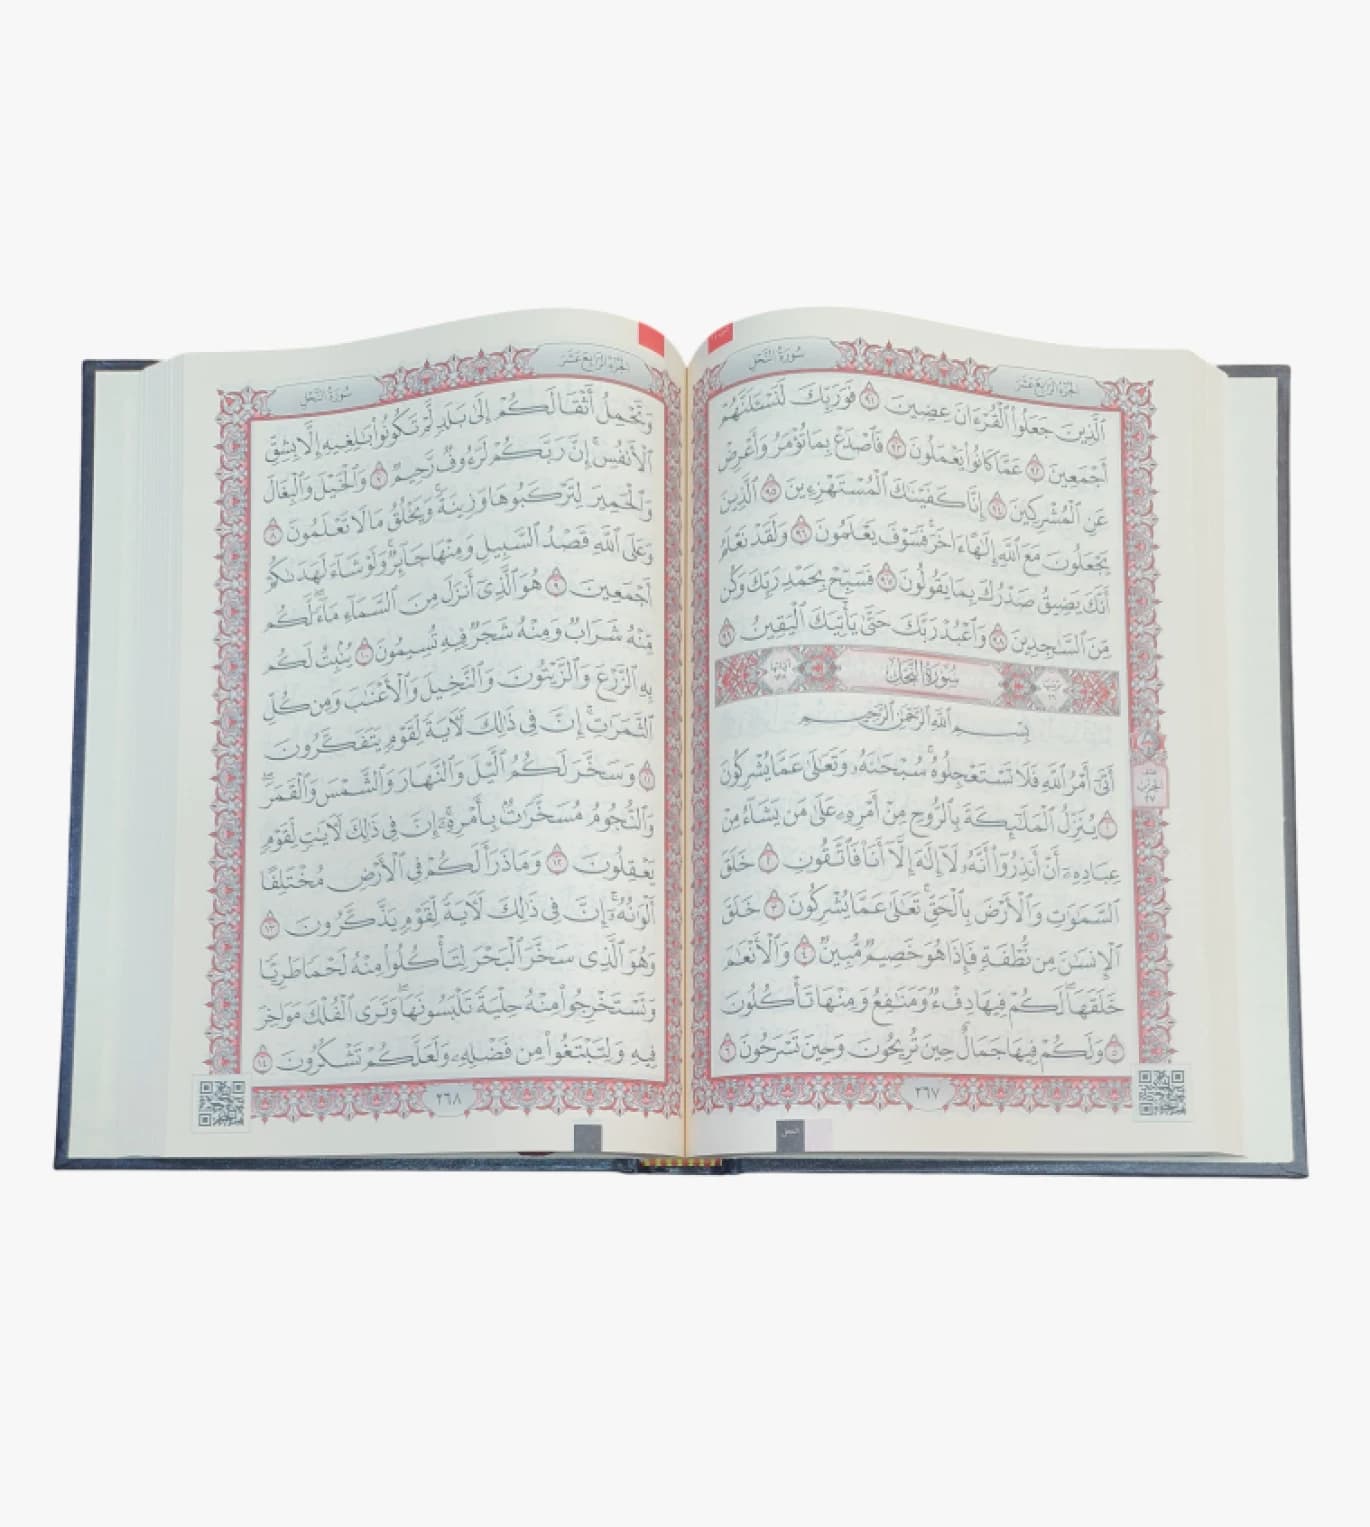 سُورَةُ النَّحْلِ
الجُزْءُ الرَّابِعَ عَشَرَ
الَّذِينَ جَعَلُوا۟ ٱلْقُرْءَانَ عِضِينَ ٩١ فَوَرَبِّكَ لَنَسْـَٔلَنَّهُمْ
أَجْمَعِينَ ٩٢ عَمَّا كَانُوا۟ يَعْمَلُونَ ٩٣ فَٱصْدَعْ بِمَا تُؤْمَرُ وَأَعْرِضْ
عَنِ ٱلْمُشْرِكِينَ ٩٤ إِنَّا كَفَيْنَـٰكَ ٱلْمُسْتَهْزِءِينَ ٩٥ ٱلَّذِينَ
يَجْعَلُونَ مَعَ ٱللَّهِ إِلَـٰهًا ءَاخَرَ ۚ فَسَوْفَ يَعْلَمُونَ ٩٦ وَلَقَدْ نَعْلَمُ
أَنَّكَ يَضِيقُ صَدْرُكَ بِمَا يَقُولُونَ ٩٧ فَسَبِّحْ بِحَمْدِ رَبِّكَ وَكُن
مِّنَ ٱلسَّـٰجِدِينَ ٩٨ وَٱعْبُدْ رَبَّكَ حَتَّىٰ يَأْتِيَكَ ٱلْيَقِينُ ٩٩
سُورَةُ النَّحْلِ
بِسْمِ ٱللَّهِ ٱلرَّحْمَـٰنِ ٱلرَّحِيمِ
أَتَىٰٓ أَمْرُ ٱللَّهِ فَلَا تَسْتَعْجِلُوهُ ۚ سُبْحَـٰنَهُۥ وَتَعَـٰلَىٰ عَمَّا يُشْرِكُونَ
١ يُنَزِّلُ ٱلْمَلَـٰٓئِكَةَ بِٱلرُّوحِ مِنْ أَمْرِهِۦ عَلَىٰ مَن يَشَآءُ مِنْ
عِبَادِهِۦٓ أَنْ أَنذِرُوٓا۟ أَنَّهُۥ لَآ إِلَـٰهَ إِلَّآ أَنَا۠ فَٱتَّقُونِ ٢ خَلَقَ
ٱلسَّمَـٰوَٰتِ وَٱلْأَرْضَ بِٱلْحَقِّ ۚ تَعَـٰلَىٰ عَمَّا يُشْرِكُونَ ٣ خَلَقَ
ٱلْإِنسَـٰنَ مِن نُّطْفَةٍ فَإِذَا هُوَ خَصِيمٌ مُّبِينٌ ٤ وَٱلْأَنْعَـٰمَ
خَلَقَهَا ۗ لَكُمْ فِيهَا دِفْءٌ وَمَنَـٰفِعُ وَمِنْهَا تَأْكُلُونَ
٥ وَلَكُمْ فِيهَا جَمَالٌ حِينَ تُرِيحُونَ وَحِينَ تَسْرَحُونَ ٦
٢٦٧
النحل
الجُزْءُ الرَّابِعَ عَشَرَ
سُورَةُ النَّحْلِ
وَتَحْمِلُ أَثْقَالَكُمْ إِلَىٰ بَلَدٍ لَّمْ تَكُونُوا۟ بَـٰلِغِيهِ إِلَّا بِشِقِّ
ٱلْأَنفُسِ ۚ إِنَّ رَبَّكُمْ لَرَءُوفٌ رَّحِيمٌ ٧ وَٱلْخَيْلَ وَٱلْبِغَالَ
وَٱلْحَمِيرَ لِتَرْكَبُوهَا وَزِينَةً ۚ وَيَخْلُقُ مَا لَا تَعْلَمُونَ ٨
وَعَلَى ٱللَّهِ قَصْدُ ٱلسَّبِيلِ وَمِنْهَا جَآئِرٌ ۚ وَلَوْ شَآءَ لَهَدَىٰكُمْ
أَجْمَعِينَ ٩ هُوَ ٱلَّذِىٓ أَنزَلَ مِنَ ٱلسَّمَآءِ مَآءً ۖ لَّكُم
مِّنْهُ شَرَابٌ وَمِنْهُ شَجَرٌ فِيهِ تُسِيمُونَ ١٠ يُنۢبِتُ لَكُم
بِهِ ٱلزَّرْعَ وَٱلزَّيْتُونَ وَٱلنَّخِيلَ وَٱلْأَعْنَـٰبَ وَمِن كُلِّ
ٱلثَّمَرَٰتِ ۗ إِنَّ فِى ذَٰلِكَ لَـَٔايَةً لِّقَوْمٍ يَتَفَكَّرُونَ
١١ وَسَخَّرَ لَكُمُ ٱلَّيْلَ وَٱلنَّهَارَ وَٱلشَّمْسَ وَٱلْقَمَرَ ۖ
وَٱلنُّجُومُ مُسَخَّرَٰتٌۢ بِأَمْرِهِۦٓ ۗ إِنَّ فِى ذَٰلِكَ لَـَٔايَـٰتٍ لِّقَوْمٍ
يَعْقِلُونَ ١٢ وَمَا ذَرَأَ لَكُمْ فِى ٱلْأَرْضِ مُخْتَلِفًا
أَلْوَٰنُهُۥٓ ۗ إِنَّ فِى ذَٰلِكَ لَـَٔايَةً لِّقَوْمٍ يَذَّكَّرُونَ ١٣
وَهُوَ ٱلَّذِى سَخَّرَ ٱلْبَحْرَ لِتَأْكُلُوا۟ مِنْهُ لَحْمًا طَرِيًّا
وَتَسْتَخْرِجُوا۟ مِنْهُ حِلْيَةً تَلْبَسُونَهَا ۖ وَتَرَى ٱلْفُلْكَ مَوَاخِرَ
فِيهِ وَلِتَبْتَغُوا۟ مِن فَضْلِهِۦ وَلَعَلَّكُمْ تَشْكُرُونَ ١٤
٢٦٨